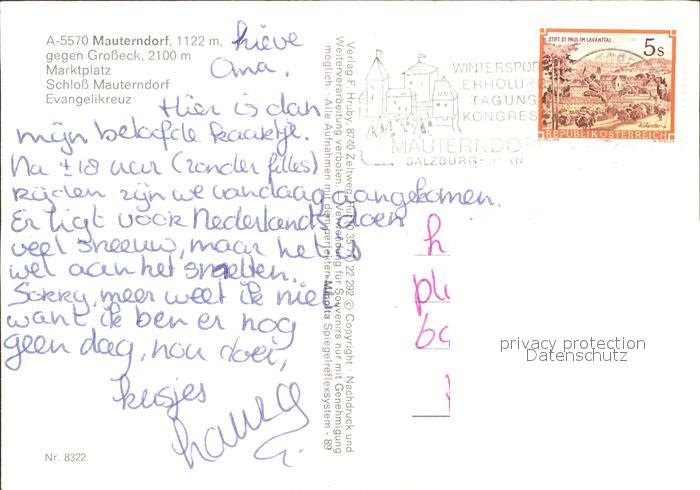 A-5570 Mauterndorf, 1122 m,
gegen Großeck, 2100 m
Marktplatz
Schloß Mauterndorf
Evangelikreuz
Lieve
Oma,
Hier is dan
mijn beloofde kaartje.
Na ± 18 uur (zonder files)
rijden zijn we vandaag aangekomen.
Er ligt voor Nederlands doen
veel sneeuw, maar het is
wel aan het smelten.
Sorry, meer weet ik niet
want ik ben er nog
geen dag, nou doei,
kusjes
Nr. 8322
Verlag F. Hruby, 8740 Zeltweg,
Weiterverarbeitung verboten. Verwendung für Souvenirs nur mit Genehmigung
möglich. Alle Aufnahmen mit dem perfekten Minolta Spiegelreflexsystem - 89
22 292 © Copyright - Nachdruck und
WINTERSPOR
ERHOLU
TAGUNG
KONGRES
MAUTERNDO
SALZBURG
STIFT ST. PAUL IM LAVANTTAL
5s
REPUBLIK ÖSTERREICH
h
pl
bo
privacy protection
Datenschutz